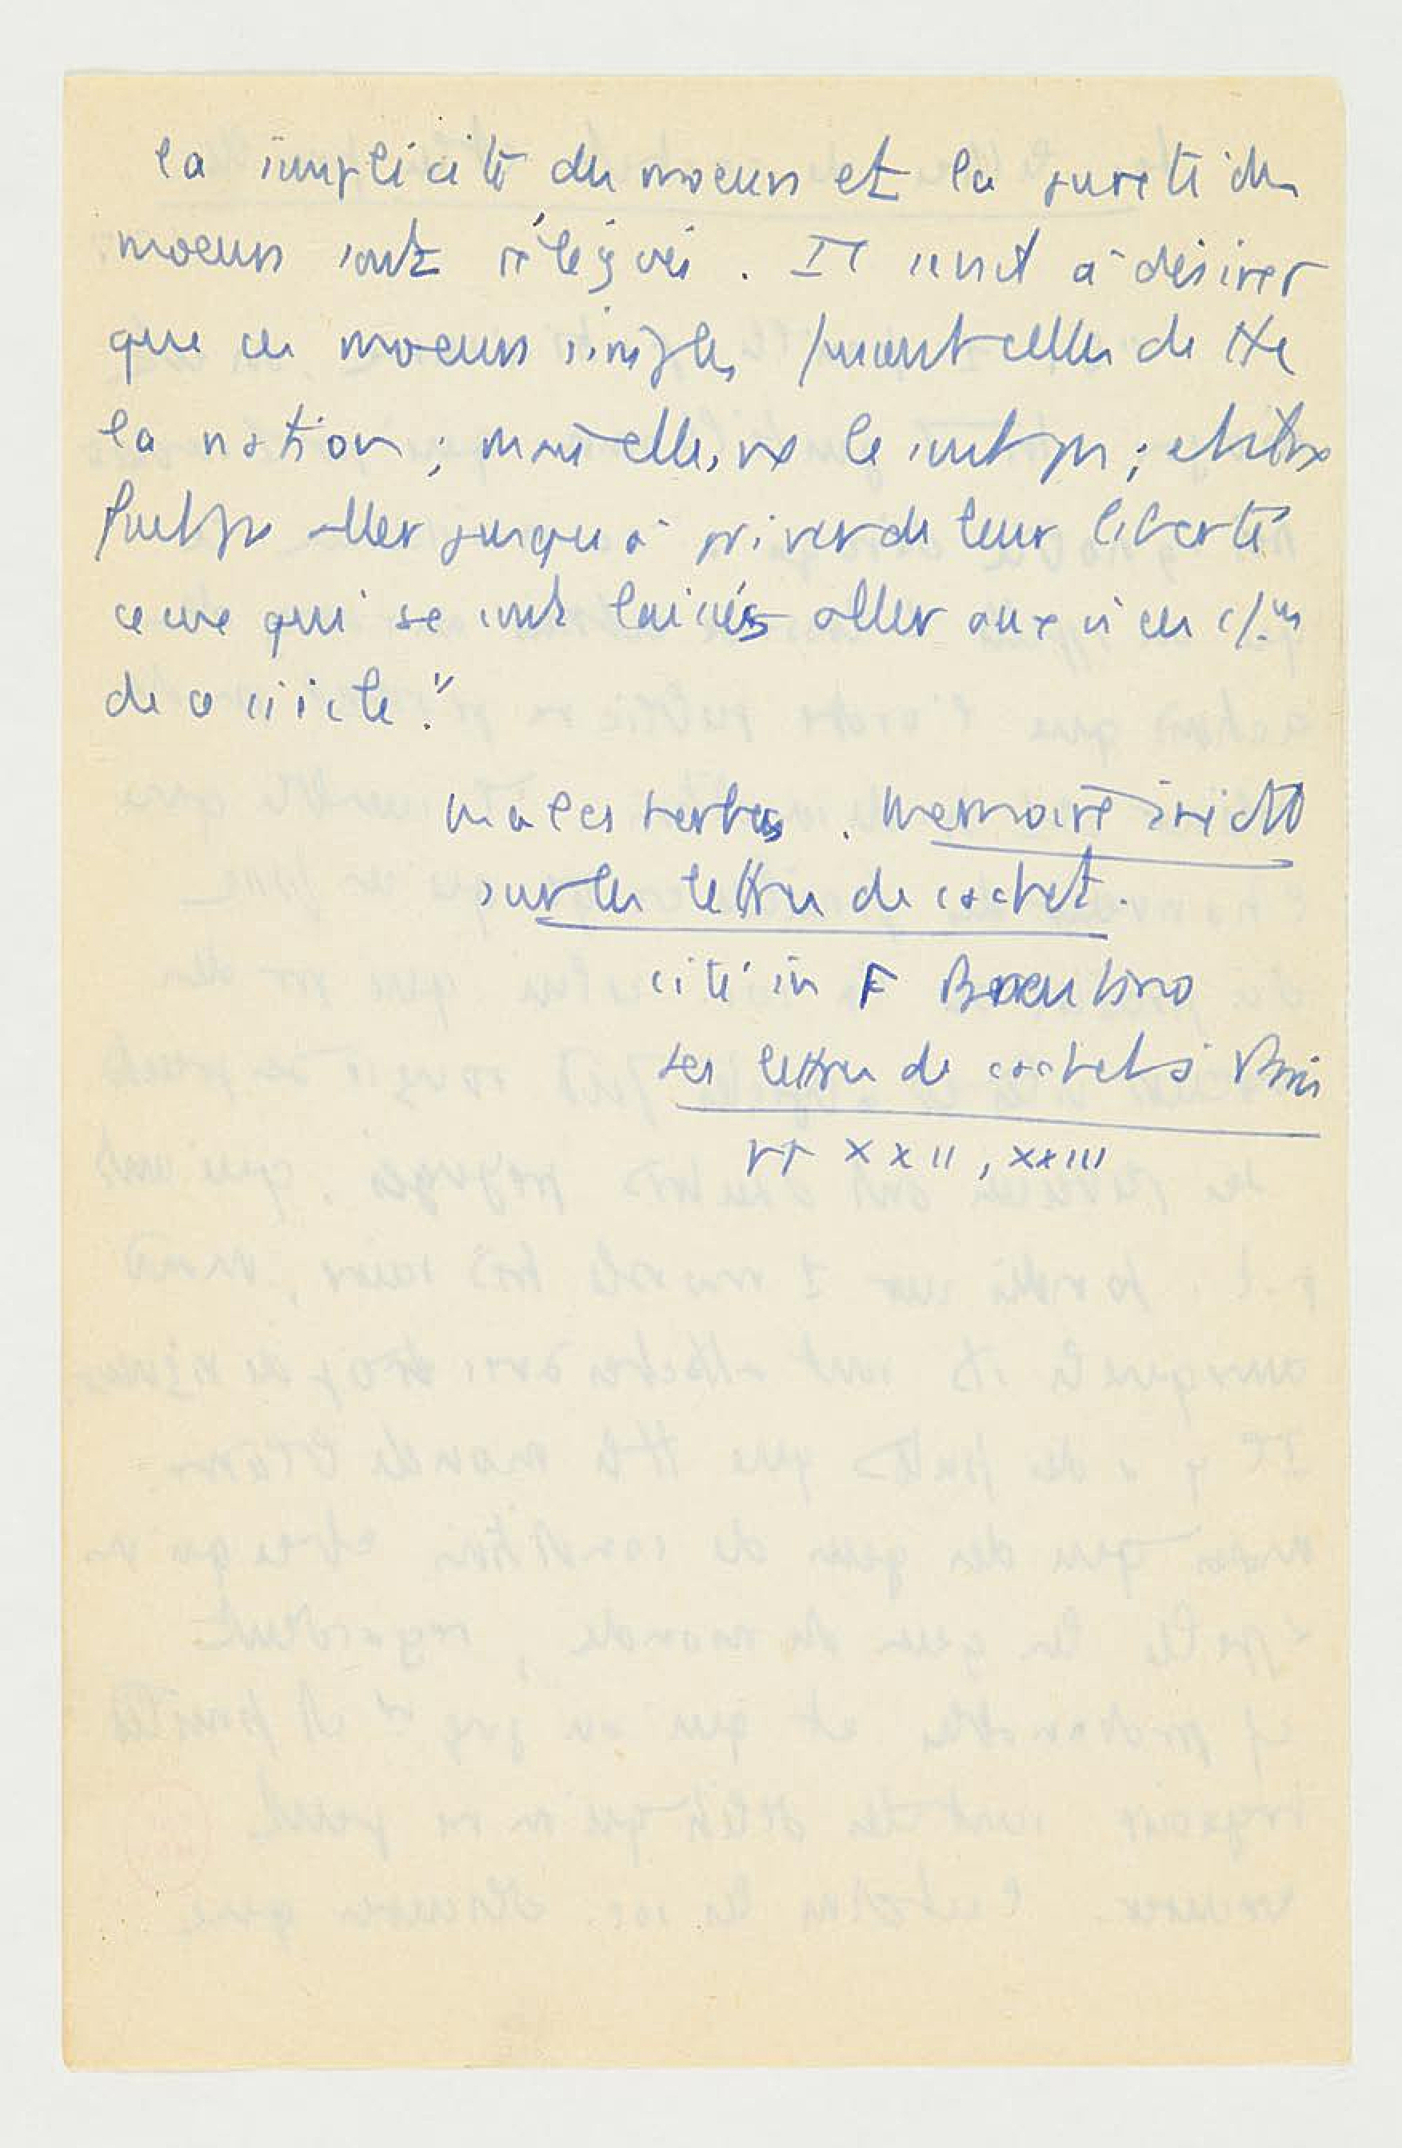 la simplicité des moeurs et la pureté des
moeurs sont reléguées. Il serait à désirer
que ces moeurs simples fussent celles de tte
la nation ; mais elles ne le sont pas ; et il ne
faut pas aller jusqu'à priver de leur liberté
ceux qui se sont laissés aller aux vices
de ce siècle."
Malesherbes. Mémoire inédit
sur les lettres de cachet.
cité in F Brentano
Les lettres de cachet à Paris
pp XXII, XXIII